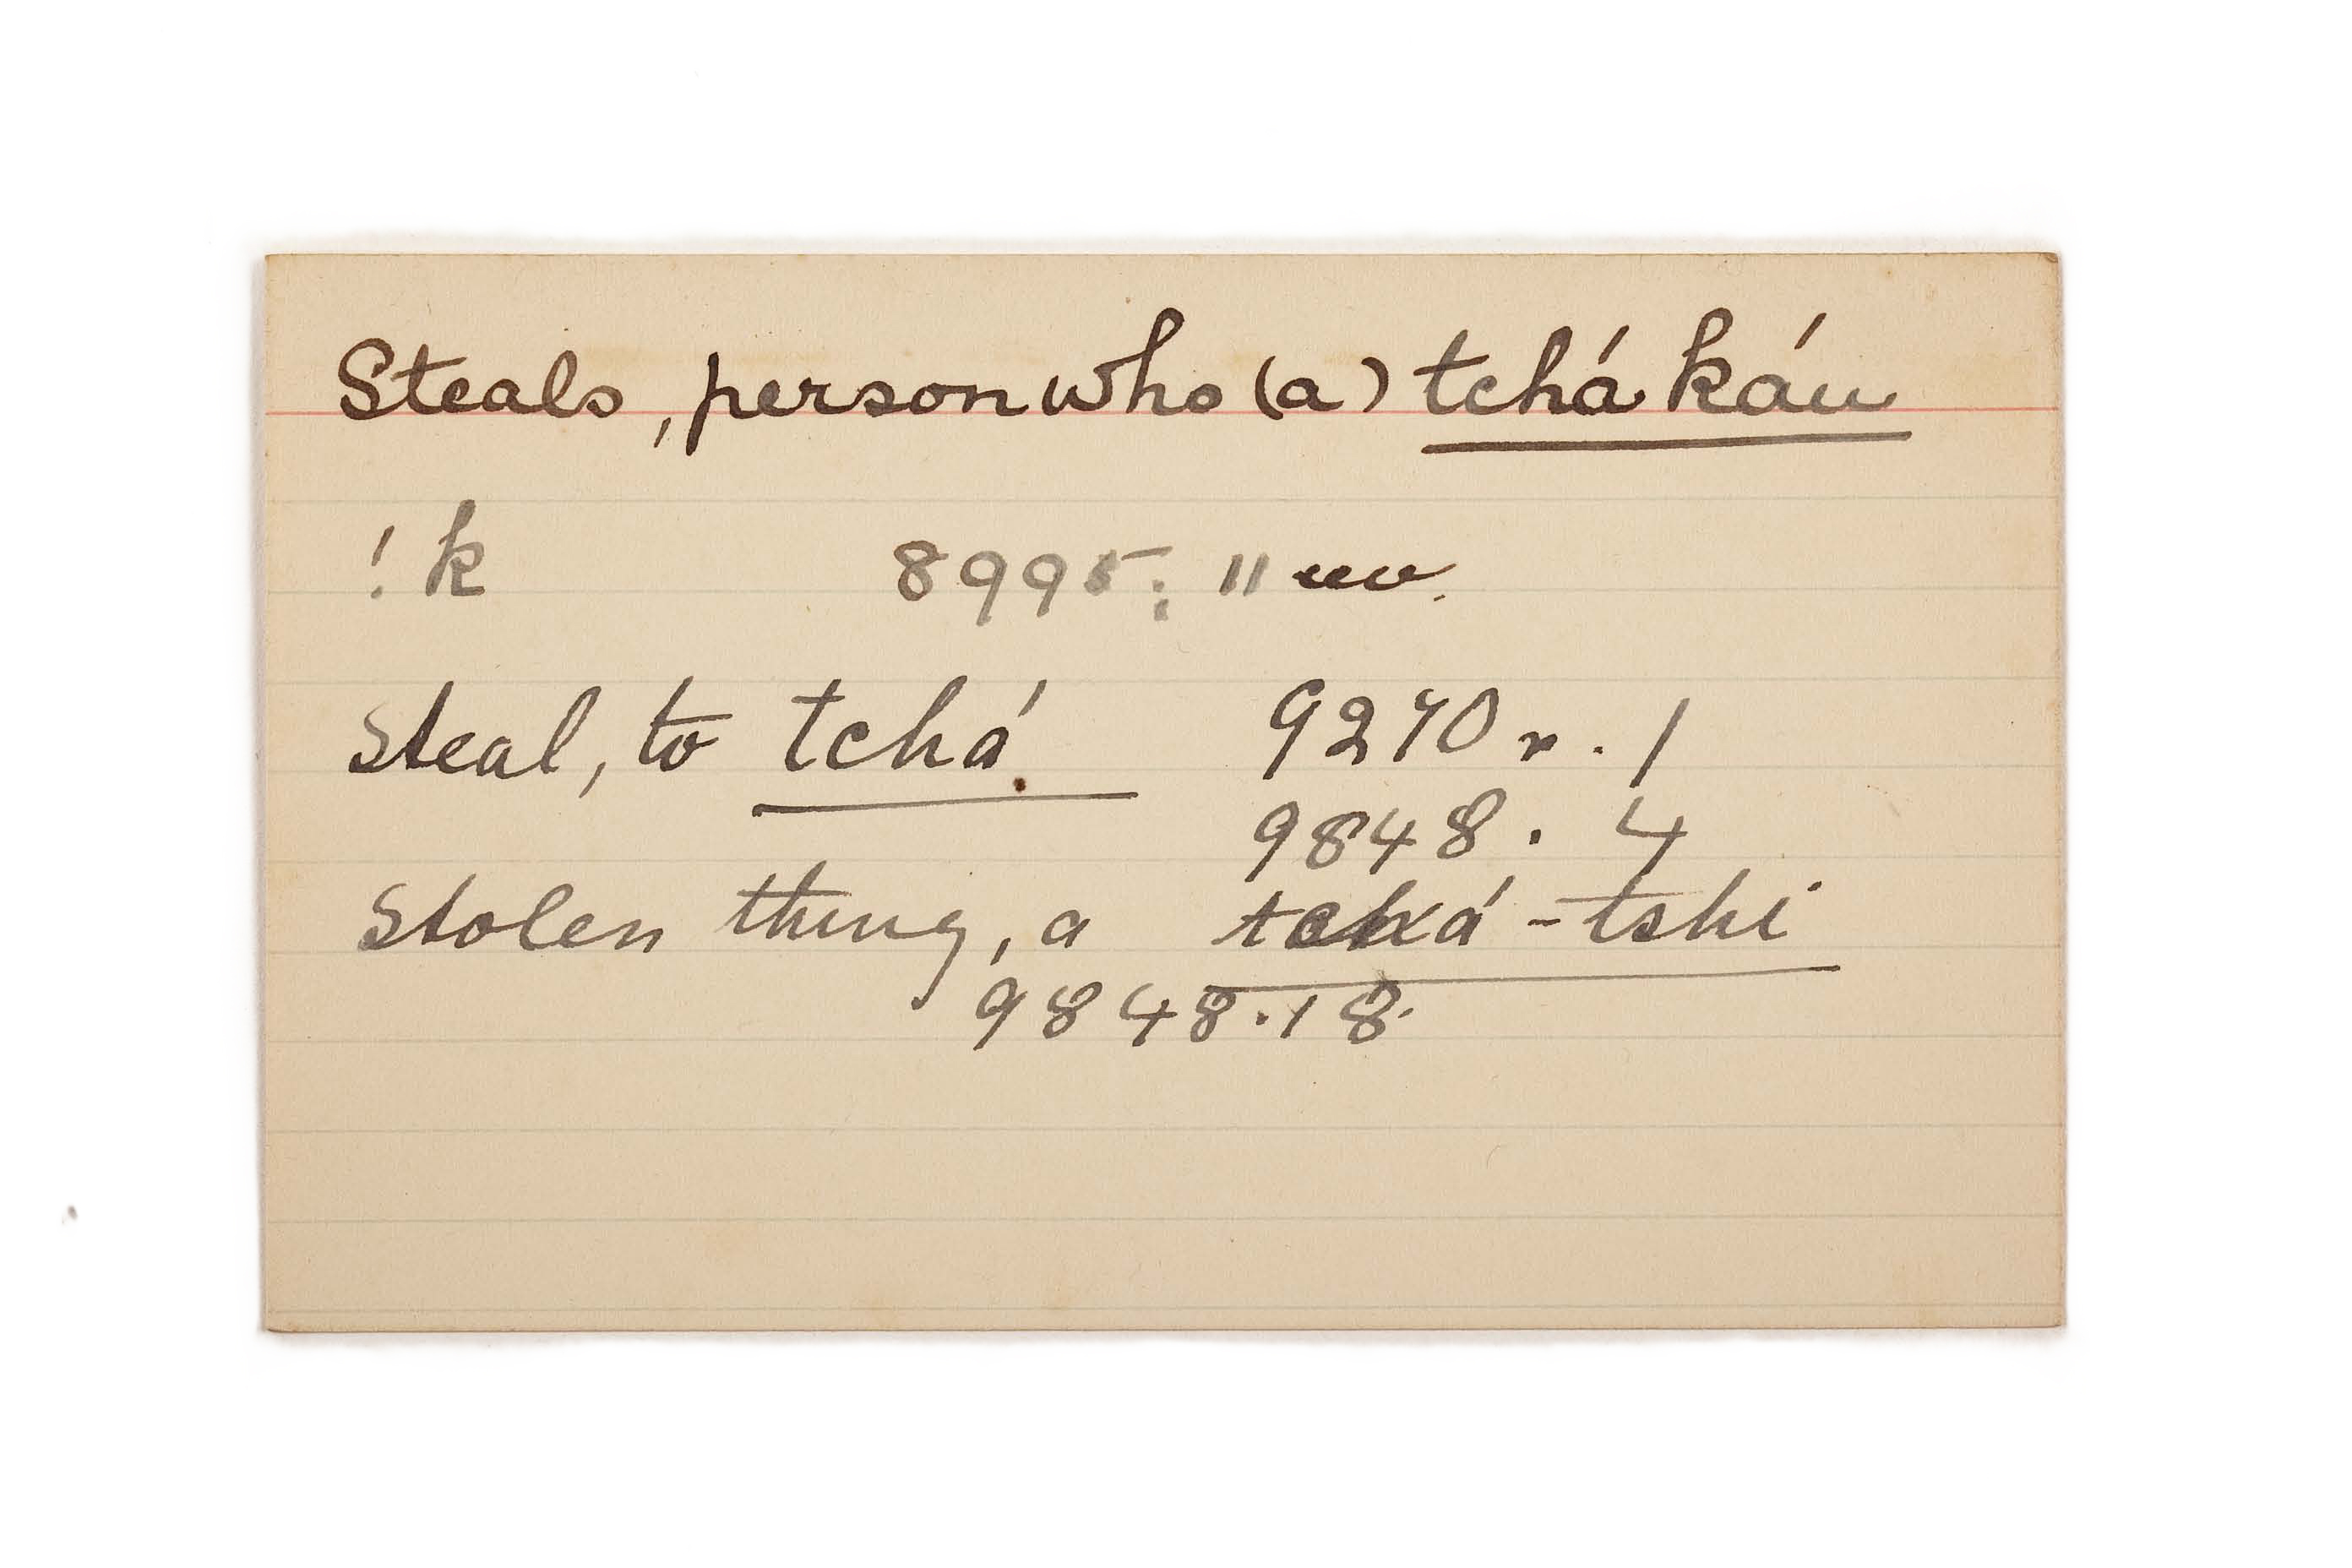 Steals, person who (a) tchá káu
! k 8995; 11 uv.
Steal, to tchá 9270 r. 1
9848. 4
Stolen thing, a tchá-tshi
9848.18.